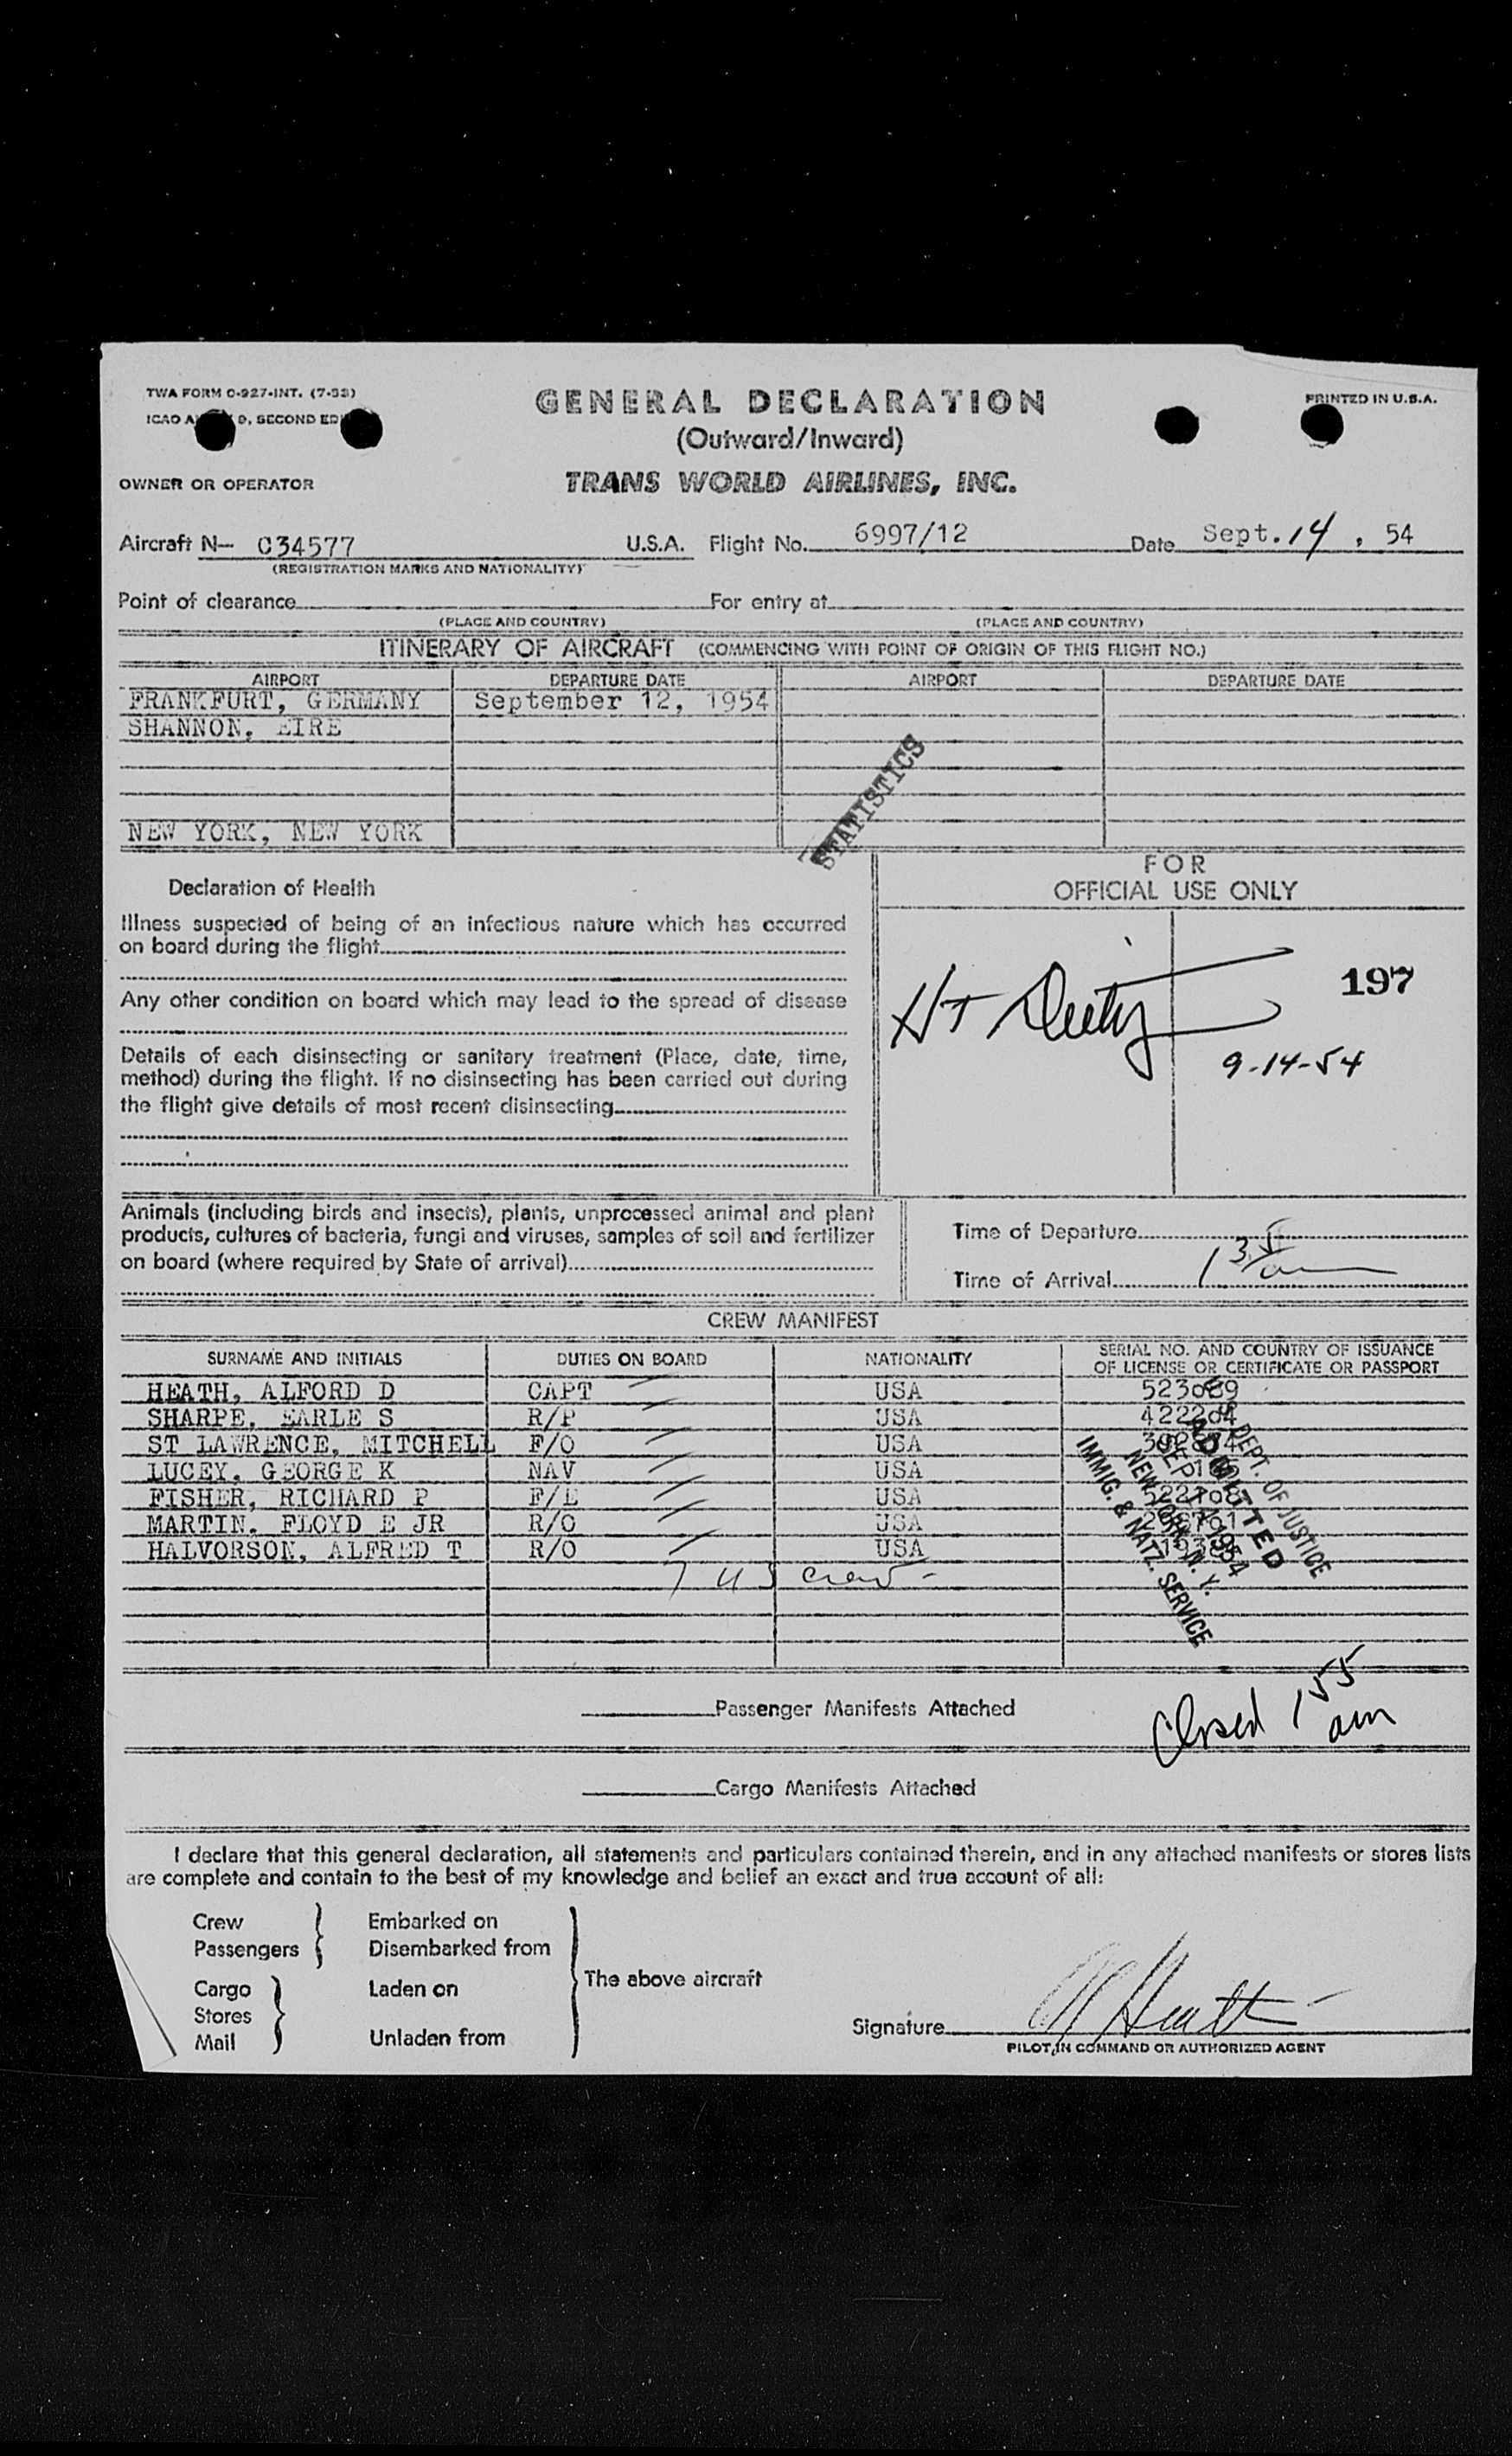 TWA FORM O-927-INT. (7-53)
GENERAL DECLARATION
PRINTED IN U.S.A.
ICAO 9, SECOND
(Outward/Inward)
OWNER OR OPERATOR
TRANS WORLD AIRLINES, INC.
Aircraft N— C34577 U.S.A. Flight No. 6997/12 Date Sept. 14, 54
(REGISTRATION MARKS AND NATIONALITY)
Point of clearance For entry at
(PLACE AND COUNTRY) (PLACE AND COUNTRY)
ITINERARY OF AIRCRAFT (COMMENCING WITH POINT OF ORIGIN OF THIS FLIGHT NO.)
AIRPORT DEPARTURE DATE AIRPORT DEPARTURE DATE
FRANKFURT, GERMANY September 12, 1954
SHANNON, EIRE
STATISTICS
NEW YORK, NEW YORK
Declaration of Health
Illness suspected of being of an infectious nature which has occurred
on board during the flight
Any other condition on board which may lead to the spread of disease
Details of each disinsecting or sanitary treatment (Place, date, time,
method) during the flight. If no disinsecting has been carried out during
the flight give details of most recent disinsecting
FOR
OFFICIAL USE ONLY
197
9-14-54
Animals (including birds and insects), plants, unprocessed animal and plant
products, cultures of bacteria, fungi and viruses, samples of soil and fertilizer
on board (where required by State of arrival)
Time of Departure
Time of Arrival 1 35 am
CREW MANIFEST
SURNAME AND INITIALS DUTIES ON BOARD NATIONALITY SERIAL NO. AND COUNTRY OF ISSUANCE
OF LICENSE OR CERTIFICATE OR PASSPORT
HEATH, ALFORD D CAPT USA
SHARPE, EARLE S R/P USA 422204
ST LAWRENCE, MITCHELL F/O USA
LUCEY, GEORGE K NAV USA
FISHER, RICHARD P F/E USA
MARTIN, FLOYD E JR R/O USA
HALVORSON, ALFRED T R/O USA
7 US crew -
U.S. DEPT. OF JUSTICE
ADMITTED
SEP 14 1954
NEW YORK, N. Y.
IMMIG. & NATZ. SERVICE
Passenger Manifests Attached
Closed 1 55 am
Cargo Manifests Attached
I declare that this general declaration, all statements and particulars contained therein, and in any attached manifests or stores lists
are complete and contain to the best of my knowledge and belief an exact and true account of all:
Crew Embarked on
Passengers Disembarked from
Cargo Laden on
Stores
Mail Unladen from
The above aircraft
Signature A Heath
PILOT IN COMMAND OR AUTHORIZED AGENT